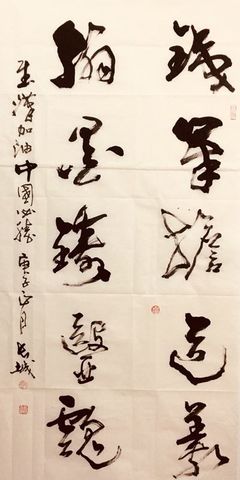 鐵筆擔道義
翰墨鑄醫魂
武漢加油中國必勝 庚子正月